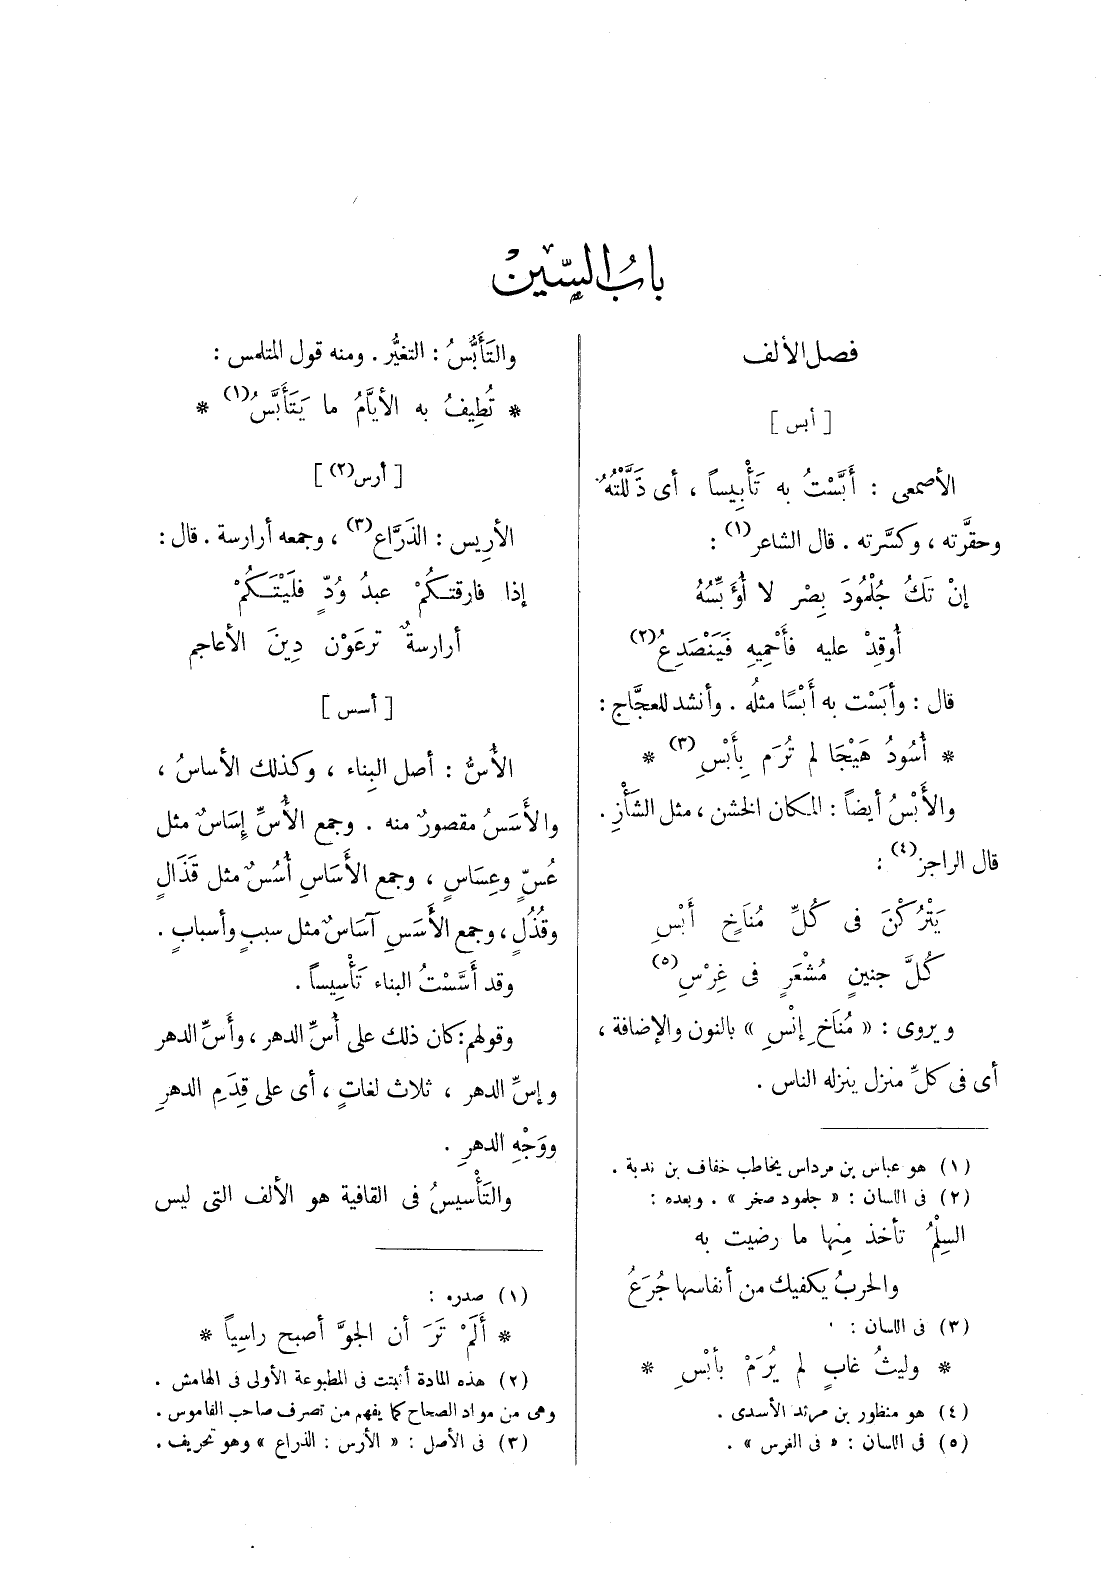 بابُ السِّين
فصل الألف
[ أبس ]
الأصمعى : أَبَّسْتُ به تَأْبِيساً ، أى ذَلَّلْتُهُ
وحقَّرته ، وكسَّرته . قال الشاعر(١) :
إنْ تَكُ جُلْمُودَ بِصْرٍ لا أُؤَبِّسُهُ
أُوقِدْ عليه فأَحْمِيهِ فَيَنْصَدِعُ(٢)
قال : وأبَسْت به أَبْسًا مثلُه . وأنشد للعجَّاج :
* أُسُودُ هَيْجَا لم تُرَم بِأَبْسِ(٣) *
والأَبْسُ أيضاً : المكان الخشن ، مثل الشَأْزِ .
قال الراجز(٤) :
يَتْرُكْنَ فى كُلِّ مُنَاخٍ أَبْسِ
كُلَّ جنينٍ مُشْعَرٍ فى غِرْسِ(٥)
ويروى : « مُنَاخِ إنْسِ » بالنون والإضافة ،
أى فى كلِّ منزل ينزله الناس .
(١) هو عباس بن مرداس يخاطب خفاف بن ندبة .
(٢) فى اللسان : « جلمود صخر » . وبعده :
السِلْمُ تأخذ مِنها ما رضيت به
والحربُ يكفيك من أنفاسها جُرَعُ
(٣) فى اللسان :
* وليثُ غابٍ لم يُرَمْ بأَبْسِ *
(٤) هو منظور بن مرثد الأسدى .
(٥) فى اللسان : « فى الغرس » .
والتَأَبُّسُ : التغيُّر . ومنه قول المتلمس :
* تُطِيفُ به الأيَّامُ ما يَتَأَبَّسُ(١) *
[ أرس(٢) ]
الأرِيس : الذَرَّاع(٣) ، وجمعه أرارسة . قال :
إذا فارقتـكُمْ عبدُ وُدٍّ فلَيْتَـكُمْ
أرارسةٌ ترعَوْن دِينَ الأعاجم
[ أسس ]
الأُسُّ : أصل البِناء ، وكذلك الأساسُ ،
والأَسَسُ مقصورٌ منه . وجمع الأُسِّ إِسَاسٌ مثل
عُسٍّ وعِسَاسٍ ، وجمع الأَسَاسِ أُسُسٌ مثل قَذَالٍ
وقُذُلٍ ، وجمع الأَسَسِ آسَاسٌ مثل سببٍ وأسبابٍ .
وقد أَسَّسْتُ البناء تَأْسِيساً .
وقولهم : كان ذلك على أُسِّ الدهر ، وأَسِّ الدهر
وإسِّ الدهر ، ثلاث لغاتٍ ، أى على قِدَمِ الدهرِ
ووَجْهِ الدهرِ .
والتَأْسيسُ فى القافية هو الألف التى ليس
(١) صدره :
* أَلَمْ تَرَ أن الجوَّ أصبح راسِياً *
(٢) هذه المادة أثبتت فى المطبوعة الأولى فى الهامش .
وهى من مواد الصحاح كما يفهم من تصرف صاحب القاموس .
(٣) فى الأصل : « الأرس : الذراع » وهو تحريف .